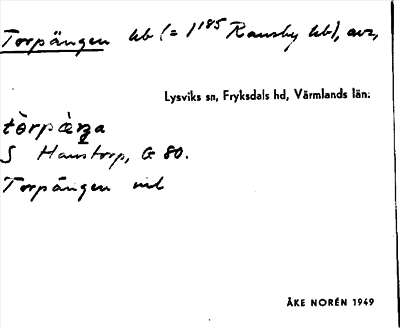 Torpängen hb (= 1/185 Ransby hb), avs,
Lysviks sn, Fryksdals hd, Värmlands län:
tòrpæ̀ŋa
S Hanstorp, G 80.
Torpängen
ÅKE NORÉN 1949